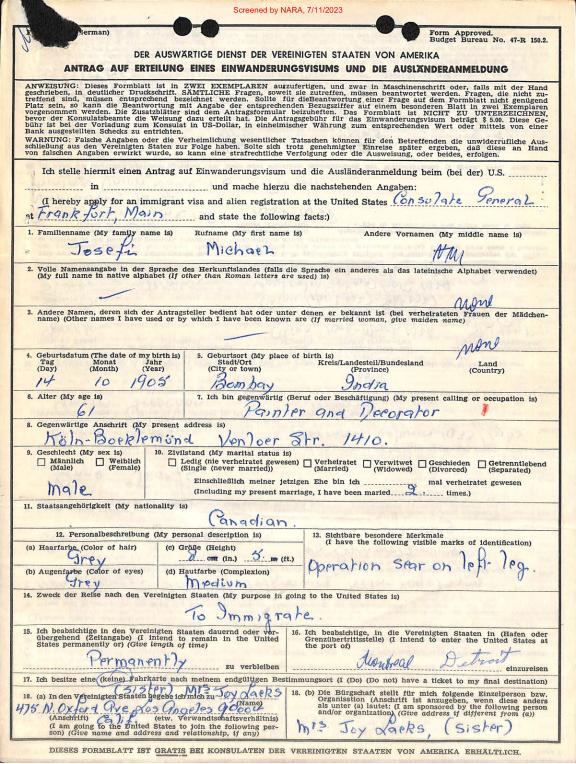 Screened by NARA, 7/11/2023
(German)
Form Approved.
Budget Bureau No. 47-R 150.2.
DER AUSWÄRTIGE DIENST DER VEREINIGTEN STAATEN VON AMERIKA
ANTRAG AUF ERTEILUNG EINES EINWANDERUNGSVISUMS UND DIE AUSLÄNDERANMELDUNG
ANWEISUNG: Dieses Formblatt ist in ZWEI EXEMPLAREN auzufertigen, und zwar in Maschinenschrift oder, falls mit der Hand
geschrieben, in deutlicher Druckschrift. SÄMTLICHE Fragen, soweit sie zutreffen, müssen beantwortet werden. Fragen, die nicht zu-
treffend sind, müssen entsprechend bezeichnet werden. Sollte für die Beantwortung einer Frage auf dem Formblatt nicht genügend
Platz sein, so kann die Beantwortung mit Angabe der entsprechenden Bezugsziffer auf einem besonderen Blatt in zwei Exemplaren
vorgenommen werden. Die Zusatzblätter sind den Antragsformular beizuheften. Das Formblatt ist NICHT ZU UNTERZEICHNEN,
bevor der Konsulatsbeamte die Weisung dazu erteilt hat. Die Antragsgebühr für das Einwanderungsvisum beträgt $ 5.00. Diese Ge-
bühr ist bei der Vorladung zum Konsulat in US-Dollar, in einheimischer Währung zum entsprechenden Wert oder mittels von einer
Bank ausgestellten Schecks zu entrichten.
WARNUNG: Falsche Angaben oder die Verheimlichung wesentlicher Tatsachen können für den Betreffenden die unwiderrufliche Aus-
schließung aus den Vereinigten Staaten zur Folge haben. Sollte sich trotz genehmigter Einreise später ergeben, daß diese an Hand
von falschen Angaben erwirkt wurde, so kann eine strafrechtliche Verfolgung oder die Ausweisung, oder beides, erfolgen.
Ich stelle hiermit einen Antrag auf Einwanderungsvisum und die Ausländeranmeldung beim (bei der) U.S.
in und mache die nachstehenden Angaben:
(I hereby apply for an immigrant visa and alien registration at the United States Consulate General
at Frankfurt, Main and state the following facts:)
1. Familienname (My family name is) Rufname (My first name is) Andere Vornamen (My middle name is)
Josefi Michael
2. Volle Namensangabe in der Sprache des Herkunftslandes (falls die Sprache ein anderes als das lateinische Alphabet verwendet)
(My full name in native alphabet (If other than Roman letters are used) is)
none
3. Andere Namen, deren sich der Antragsteller bedient hat oder unter denen er bekannt ist (bei verheirateten Frauen der Mädchen-
name) (Other names I have used or by which I have been known are (If married woman, give maiden name)
none
4. Geburtsdatum (The date of my birth is) 5. Geburtsort (My place of birth is)
Tag Monat Jahr Stadt/Ort Kreis/Landesteil/Bundesland Land
(Day) (Month) (Year) (City or town) (Province) (Country)
14 10 1905 Bombay India
6. Alter (My age is) 7. Ich bin gegenwärtig (Beruf oder Beschäftigung) (My present calling or occupation is)
61 Painter and Decorator
8. Gegenwärtige Anschrift (My present address is)
Köln-Bocklemünd Venloer Str. 1410.
9. Geschlecht (My sex is) 10. Zivilstand (My marital status is)
Männlich Weiblich Ledig (nie verheiratet gewesen) Verheiratet Verwitwet Geschieden Getrenntlebend
(Male) (Female) (Single (never married) (Married) (Widowed) (Divorced) (Separated)
Einschließlich meiner jetzigen Ehe bin ich mal verheiratet gewesen
Male (Including my present marriage, I have been married 2. times.)
11. Staatsangehörigkeit (My nationality is)
Canadian.
12. Personalbeschreibung (My personal description is) 13. Sichtbare besondere Merkmale
(I have the following visible marks of identification)
(a) Haarfarbe (Color of hair) (c) Größe (Height)
Grey (in.) 5 (ft.)
Operation scar on left leg.
(b) Augenfarbe (Color of eyes) (d) Hautfarbe (Complexion)
Grey Medium
14. Zweck der Reise nach den Vereinigten Staaten (My purpose in going to the United States is)
To Immigrate.
15. Ich beabsichtige in den Vereinigten Staaten dauernd oder vor-
übergehend (Zeitangabe) (I intend to remain in the United
States permanently or) (Give length of time)
Permanently zu verbleiben
16. Ich beabsichtige, in die Vereinigten Staaten in (Hafen oder
Grenzübertrittstelle) (I intend to enter the United States at
the port of)
Montreal Detroit einzureisen
17. Ich besitze eine (keine) Fahrkarte nach meinem endgültigen Bestimmungsort (I (Do) (Do not) have a ticket to my final destination)
(Sister) Mrs Joy Lacks
18. (a) In den Vereinigten Staaten
(Name)
475 N. Oxford Ave Los Angeles 90004
Calif.
(Anschrift) (etw. Verwandtschaftsverhältnis)
(I am going to the United States to join the following per-
son (Give name and address and relationship, if any)
18. (b) Die Bürgschaft stellt für mich folgende Einzelperson bzw.
Organisation (Anschrift ist anzugeben, wenn diese anders
als unter (a) lautet: (I am sponsored by the following person
and/or organization:) (Give address if different from (a))
Mrs Joy Lacks, (Sister)
DIESES FORMBLATT IST GRATIS BEI KONSULATEN DER VEREINIGTEN STAATEN VON AMERIKA ERHÄLTLICH.